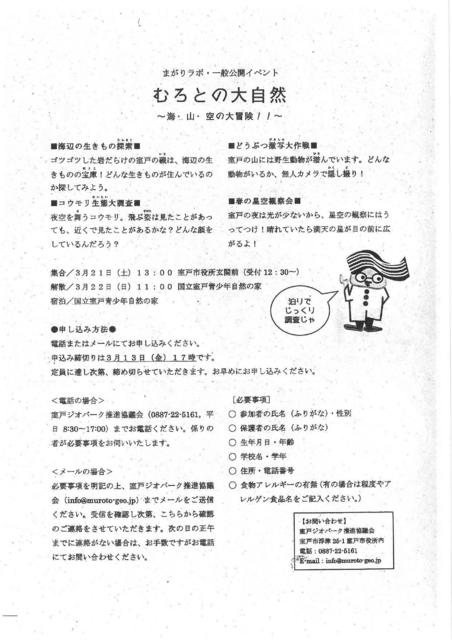 まがりラボ・一般公開イベント
むろとの大自然
～海・山・空の大冒険！！～
■海辺の生きもの探索■
ゴツゴツした岩だらけの室戸の磯は、海辺の生
きものの宝庫！どんな生きものが住んでいるの
か探してみよう。
■コウモリ生態大調査■
夜空を舞うコウモリ。飛ぶ姿は見たことがあっ
ても、近くで見たことがあるかな？どんな顔を
しているんだろう？
■どうぶつ激写大作戦■
室戸の山には野生動物が潜んでいます。どんな
動物がいるか、無人カメラで隠し撮り！
■春の星空観察会■
室戸の夜は光が少ないから、星空の観察にはう
ってつけ！晴れていたら満天の星が目の前に広
がるよ！
集合／３月２１日（土）１３：００ 室戸市役所玄関前（受付１２：３０～）
解散／３月２２日（日）１１：００ 国立室戸青少年自然の家
宿泊／国立室戸青少年自然の家
泊りで
じっくり
調査じゃ
●申し込み方法●
電話またはメールにてお申し込みください。
申込み締切りは３月１３日（金）１７時です。
定員に達し次第、締め切らせていただきます。お早めにお申し込みください。
＜電話の場合＞
室戸ジオパーク推進協議会（0887-22-5161、平
日 8:30～17:00）までお電話ください。係りの
者が必要事項をお伺いいたします。
＜メールの場合＞
必要事項を明記の上、室戸ジオパーク推進協議
会（info@muroto-geo.jp）までメールをご送信
ください。受信を確認し次第、こちらから確認
のご連絡をさせていただきます。次の日の正午
までに連絡がない場合は、お手数ですがお電話
にてお問い合わせください。
［必要事項］
○ 参加者の氏名（ふりがな）・性別
○ 保護者の氏名（ふりがな）
○ 生年月日・年齢
○ 学校名・学年
○ 住所・電話番号
○ 食物アレルギーの有無（有の場合は程度やア
レルゲン食品名をご記入ください。）
【お問い合わせ】
室戸ジオパーク推進協議会
室戸市浮津 25-1 室戸市役所内
電話：0887-22-5161
E-mail：info@muroto-geo.jp